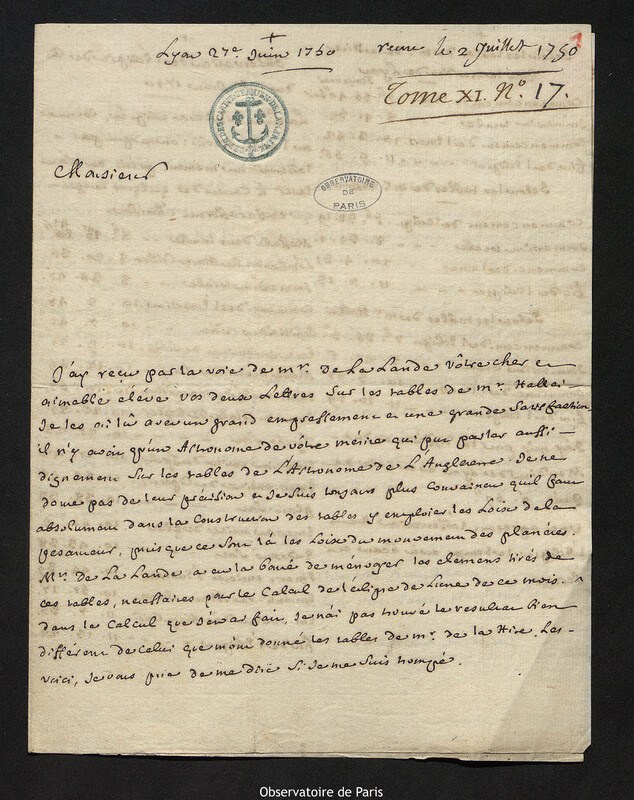 Lyon 27e Juin 1750 reçue le 2 Juillet 1750
1
Tome XI. No. 17.
OBSERVATOIRE
DE
PARIS
Monsieur
J'ay reçu par la voie de mr. de La Lande vôtre cher et
aimable éléve vos deux Lettres Sur les tables de mr. Hallei
Je les ai lû avec un grand empressement et une grande Satisfaction
il n'y avoit qu'un Astronome de vôtre mérite qui put parler aussi
dignement Sur les tables de L'Astronome de L'Angleterre. Je ne
doute pas de leur précision et Je Suis toujours plus Convaincu qu'il faut
absolument dans la Construction des tables y emploier les Loix de la
pesanteur, puisque ce Sont là les Loix du mouvement des planétes.
Mr. de La Lande a eu la bonté de ménager les elemens tirés de
ces tables, necessaires pour le Calcul de l'éclipse de Lune de ce mois.
dans le Calcul que J'en ai fait, Je n'ai pas trouvé le resultat bien
différent de Celui que m'ont donné les tables de mr. de la Hire. Les
voici, Je vous prie de me dire Si Je me Suis trompé.
Observatoire de Paris